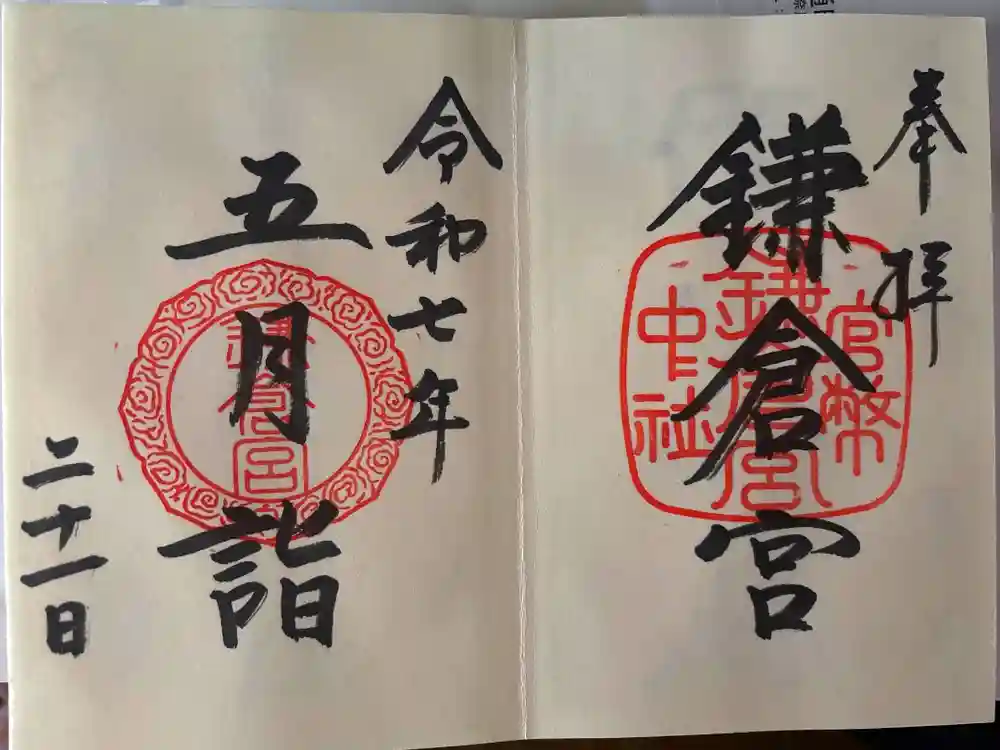 奉拝
鎌倉宮
官幣
鎌倉宮
中社
令和七年
五月詣
鎌倉宮
二十一日